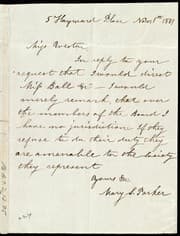 5 Hayward Place Nov 1st 1839
Miss Weston
In reply to your
request that I would direct
Miss Ball &c - I would
merely remark that over
the members of the Board I
have no jurisdiction. If they
refuse to do their duty they
are amenable to the Society
they represent
Yours &c
Mary S. Parker